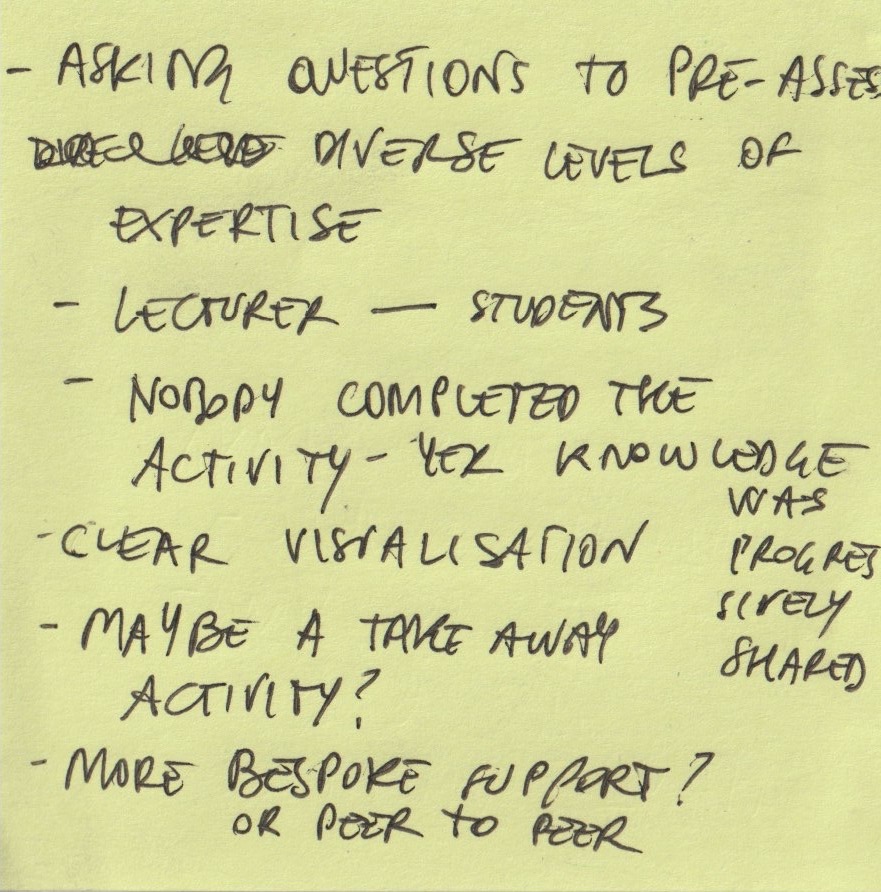 - ASKING QUESTIONS TO PRE-ASSES
DIVERSE LEVELS OF
EXPERTISE
- LECTURER — STUDENTS
- NOBODY COMPLETED THE
ACTIVITY - YER KNOWLEDGE
WAS
PROGRES
SIVELY
SHARED
- CLEAR VISUALISATION
- MAYBE A TAKE AWAY
ACTIVITY?
- MORE BESPOKE SUPPORT?
OR PEER TO PEER